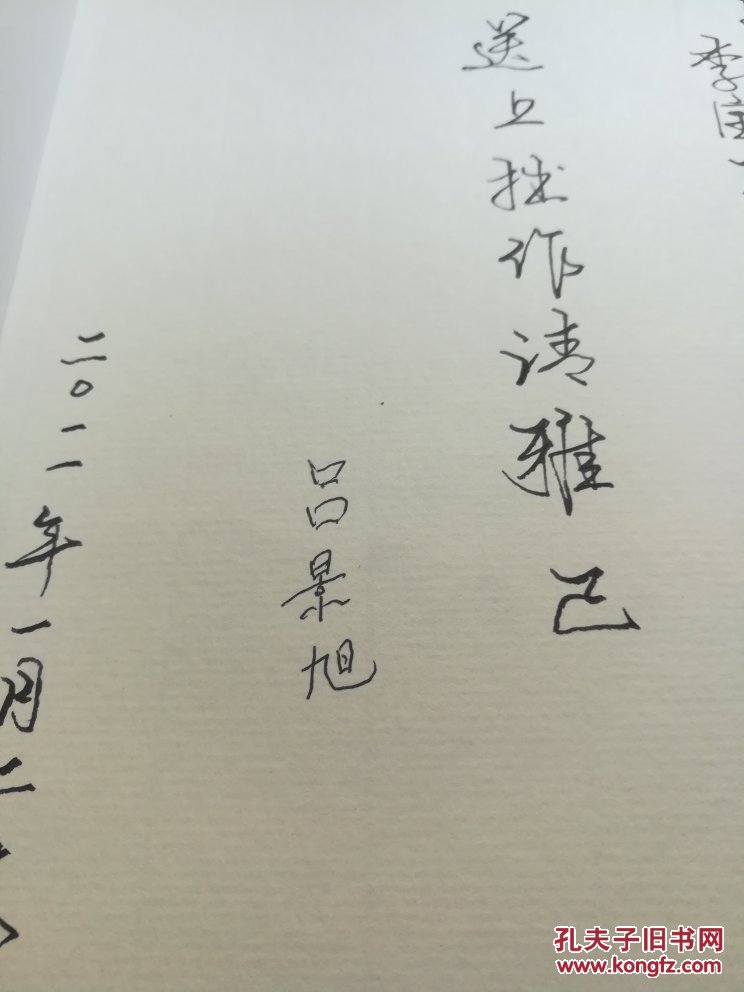 李
送上拙作请雅己
吕景旭
二〇一一年一月二
孔夫子旧书网
www.kongfz.com